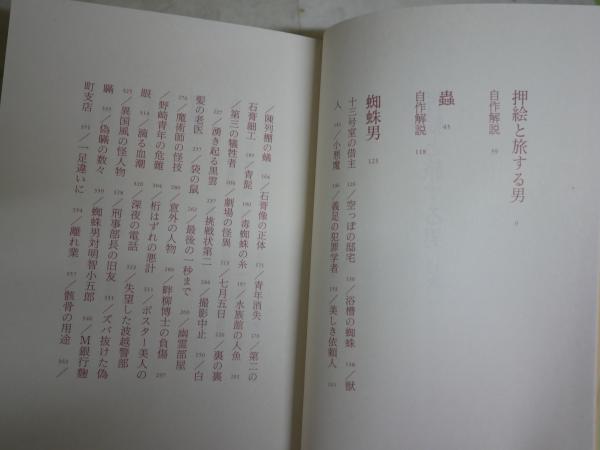 押絵と旅する男
自作解説 39
蟲 45
自作解説 118
蜘蛛男 123
十三号室の借主 125／空っぽの邸宅／浴槽の蜘蛛／獣
人／小悪魔／義足の犯罪学者／美しき依頼人
／陳列棚の蟻／石膏像の正体／青年消失／第二の
石膏細工／青髭／毒蜘蛛の糸／水族館の人魚
／第三の犠牲者／劇場の怪異／七月五日／裏の裏
／湧き起る黒雲／挑戦状第二／撮影中止／白
髪の老医／袋の鼠／最後の一秒まで／幽霊部屋
／魔術師の怪技／意外の人物／畔柳博士の負傷
／野崎青年の危難／桁はずれの悪計／ポスター美人の
眼／滴る血潮／深夜の電話／失望した波越警部
／異国風の怪人物／刑事部長の旧友／ズバ抜けた偽
瞞／偽瞞の数々／蜘蛛男対明智小五郎／M銀行麹
町支店／一足違いに／離れ業／骸骨の用途／